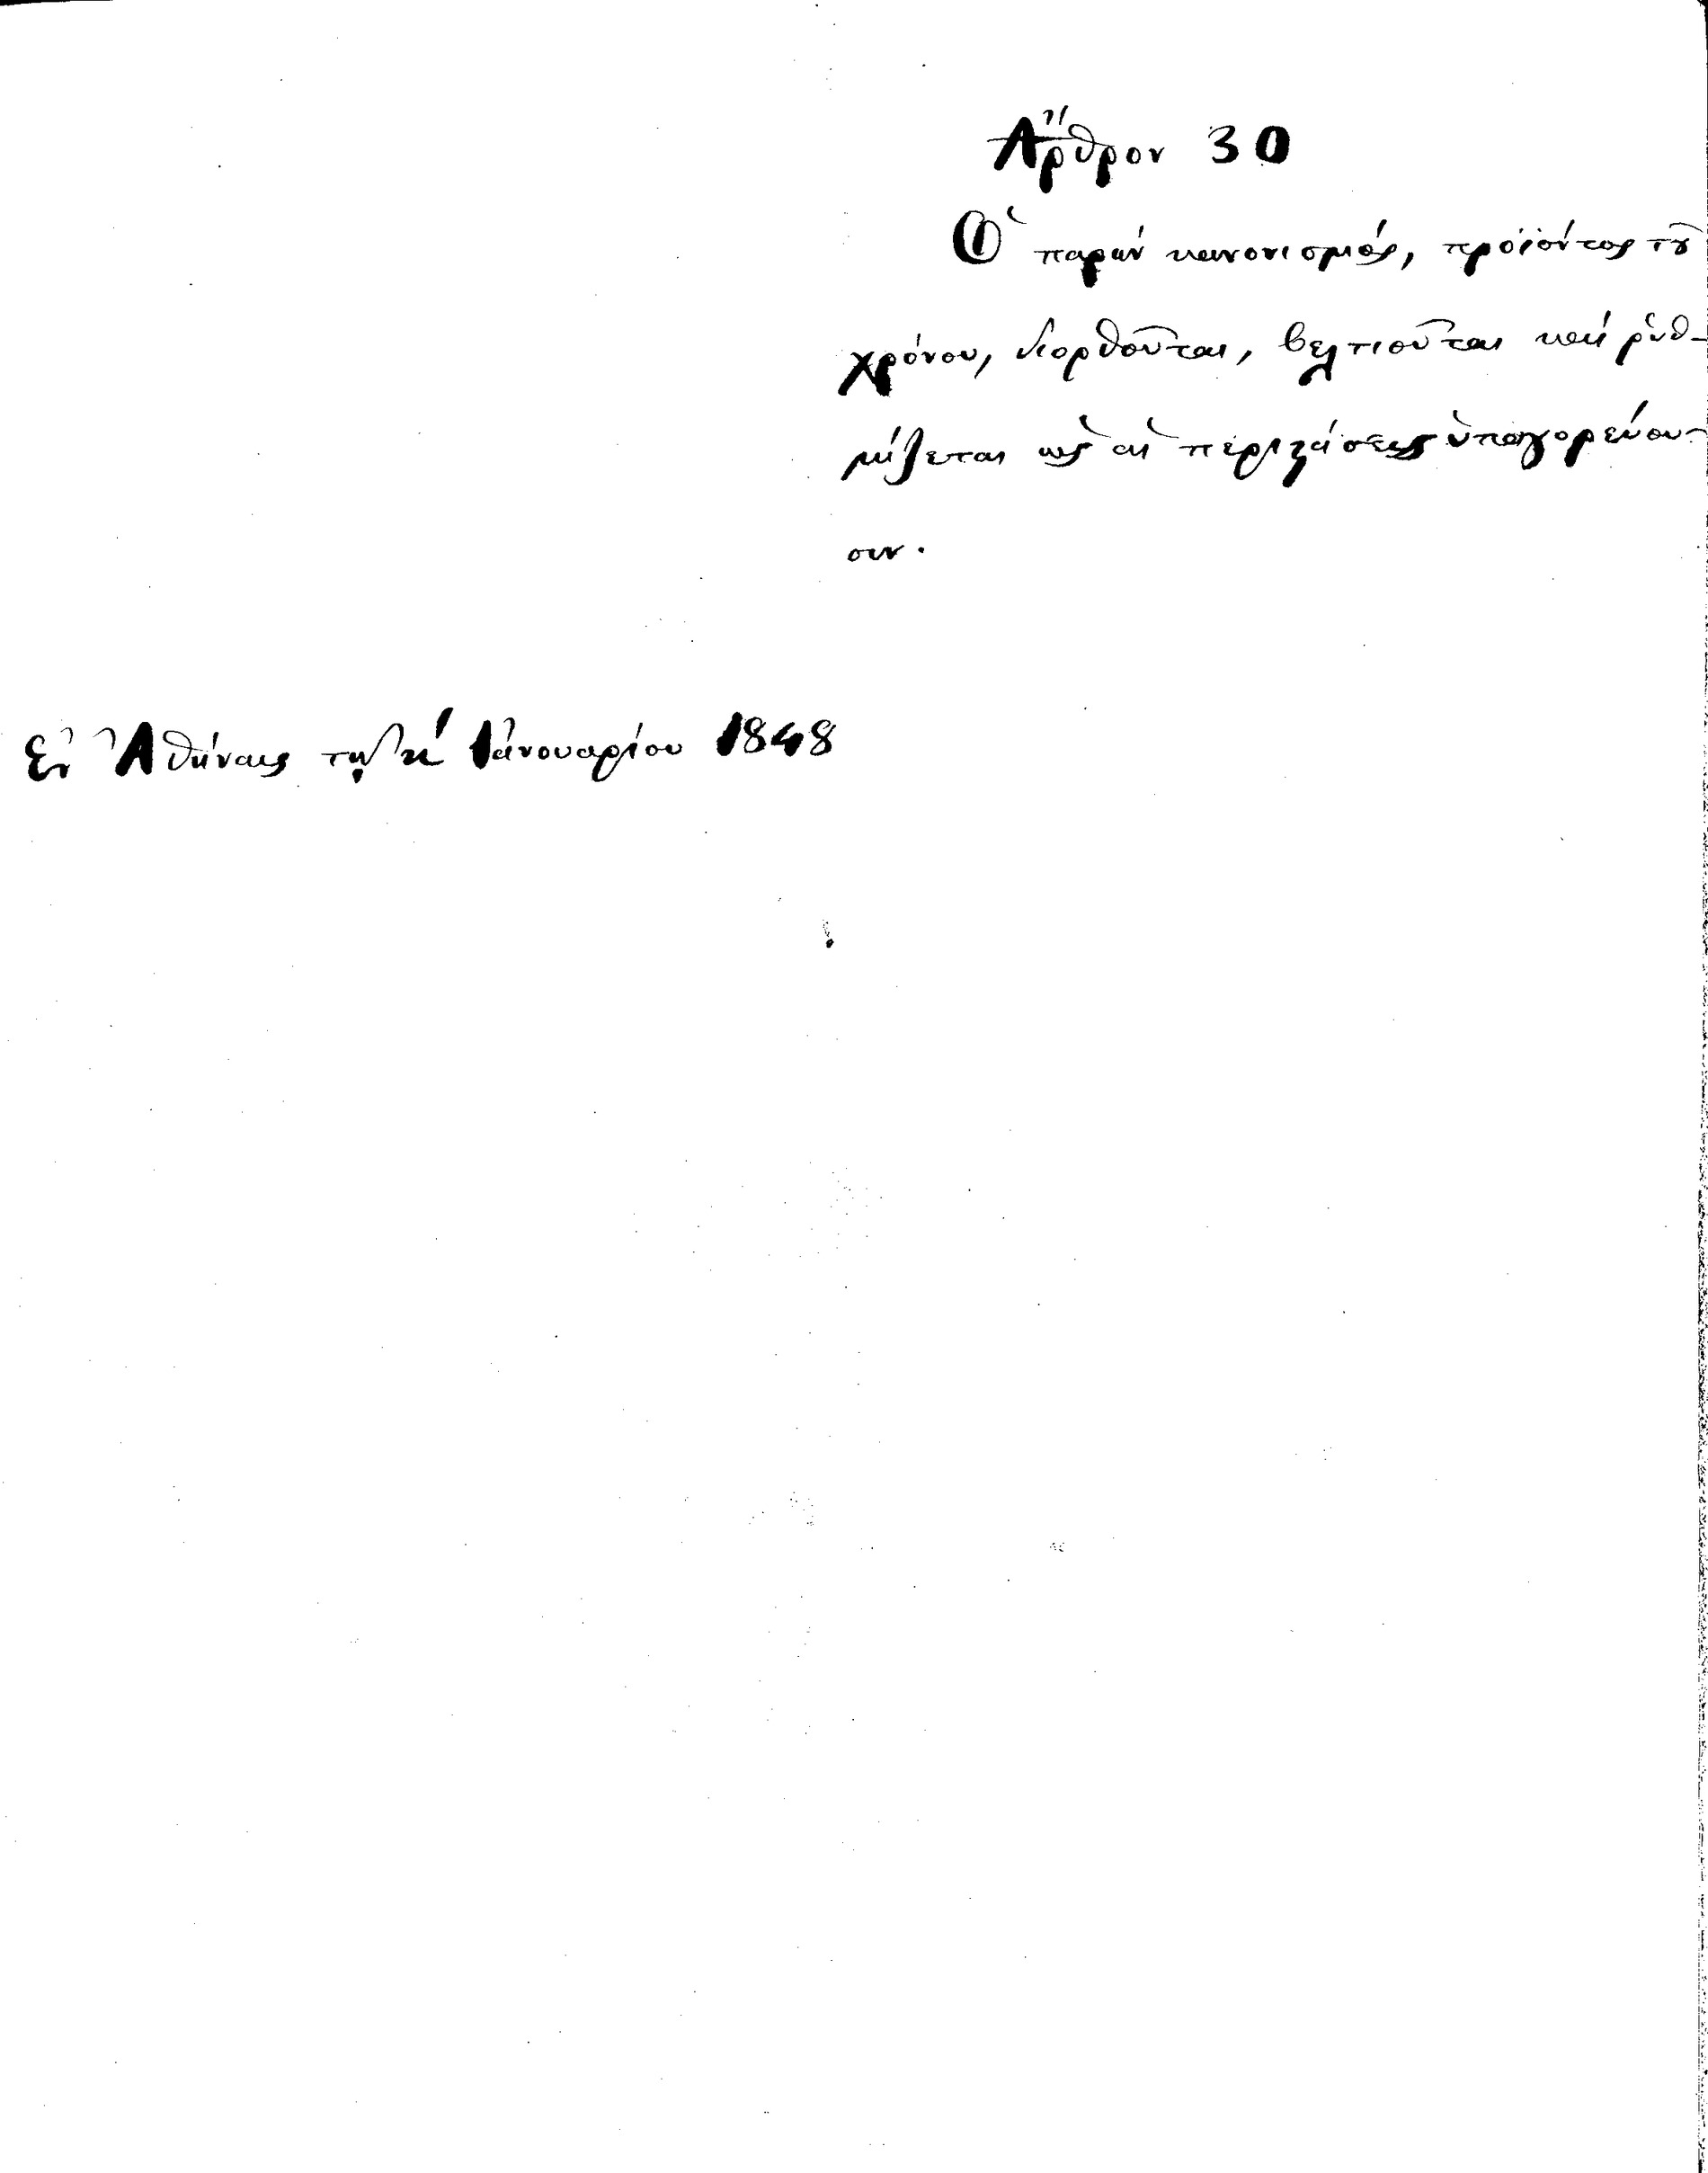 Ἄρθρον 30
Ὁ παρὼν κανονισμός, προϊόντος τοῦ
χρόνου, διορθοῦται, βελτιοῦται καί ῥυθ-
μίζεται ὡς αἱ περιστάσεις ὑπαγορεύου-
σιν.
Ἐν Ἀθήναις τῇ κ΄ Ἰανουαρίου 1848